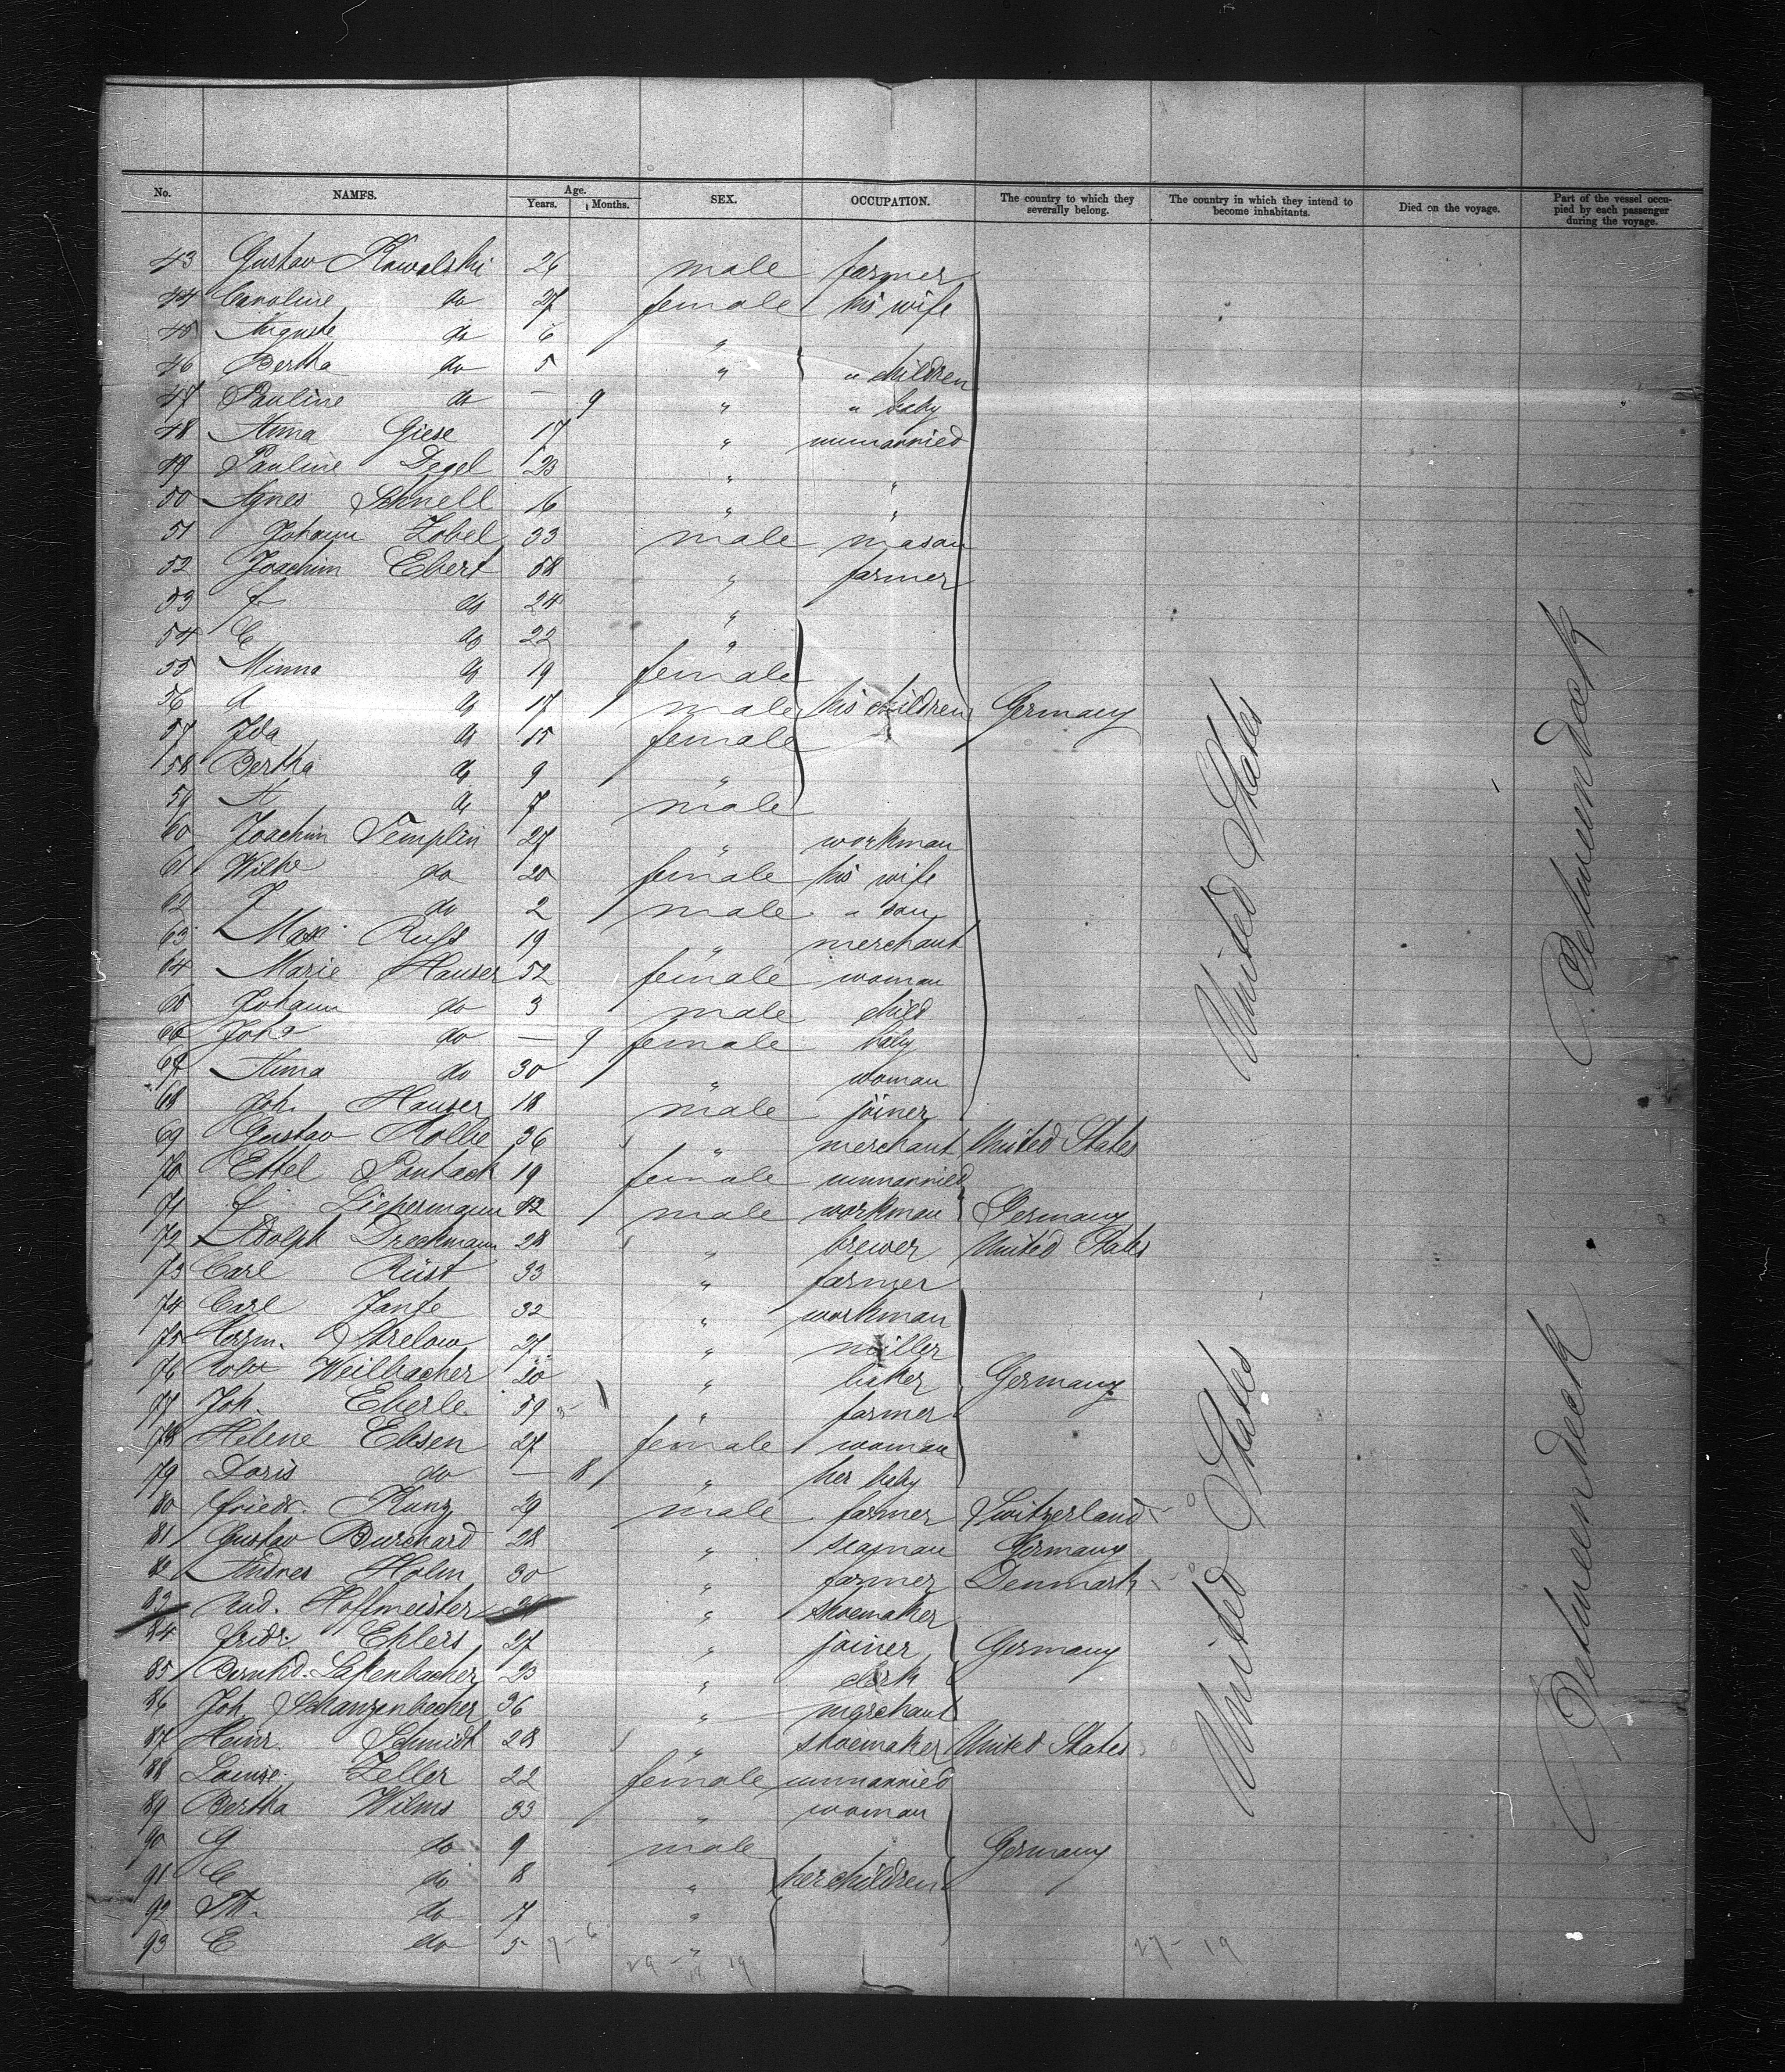 No. NAMES. Age. Years. Months. SEX. OCCUPATION. The country to which they severally belong. The country in which they intend to become inhabitants. Died on the voyage. Part of the vessel occupied by each passenger during the voyage.
43 Gustav Kowalski 26 male farmer
44 Caroline do 27 female his wife
45 Auguste do 6 "
46 Bertha do 5 " " children
47 Pauline do — 9 " " baby
48 Anna Giese 17 " unmarried
49 Pauline Degel 23 " "
50 Agnes Schnell 16 " "
51 Johann Zobel 33 male mason
52 Joachim Ebert 58 " farmer
53 f do 24 "
54 C do 22 "
55 Minna do 19 female
56 A do 17 male his children Germany
57 Ida do 15 female
58 Bertha do 9 "
59 A do 7 male
60 Joachim Templin 27 " workman
61 do 20 female his wife
62 J do 2 male " son
63 Max Ruft 19 " merchant
64 Marie Hauser 52 female woman
65 Johann do 3 male child
66 Joha do — 9 female baby
67 Anna do 30 " woman
68 Joh. Hauser 18 male joiner
69 Gustav Kolbe 36 " merchant United States
70 Ettel Pontack 19 female unmarried
71 Liepermann 42 male workman Germany
72 Adolph Dreckmann 28 " brewer United States
73 Carl Rüst 33 " farmer
74 Carl Janfe 32 " workman
75 Herm. Strelow 27 " miller
76 Weilbacher 20 " baker Germany
77 Joh. Eberle 59 " farmer
78 Helene Ebsen 27 female woman
79 Doris do — 8 " her baby
80 Friedr. Kunz 29 male farmer Switzerland
81 Gustav Burchard 28 " seaman Germany
82 Andres Holm 30 " farmer Denmark
83 Rud. Hoffmeister " shoemaker
84 Fridr. Ehlers 27 " joiner Germany
85 Bernhd. Lassenbacher 23 " clerk
86 Joh. Schanzenbecher 36 " merchant
87 Heinr. Schmidt 28 " shoemaker United States
88 Louise Zeller 22 female unmarried
89 Bertha Wilms 33 " woman
90 G do 9 male Germany
91 C do 8 " her children
92 Th. do 7 "
93 E do 5 "
United States
Betweendeck
United States
Betweendeck
7-6
29 - 19
18
27 - 19